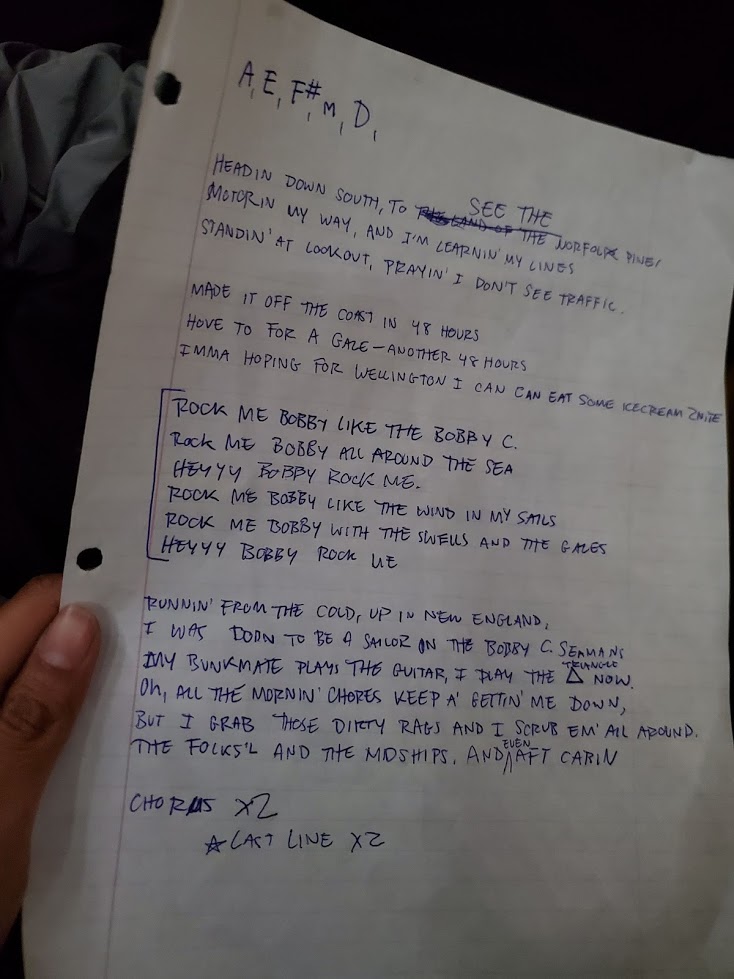 A, E, F#m, D,
HEADIN DOWN SOUTH, TO SEE THE NORFOLK PINES
MOTORIN MY WAY, AND I'M LEARNIN' MY LINES
STANDIN' AT LOOKOUT, PRAYIN' I DON'T SEE TRAFFIC.
MADE IT OFF THE COAST IN 48 HOURS
HOVE TO FOR A GALE - ANOTHER 48 HOURS
IMMA HOPING FOR WELLINGTON I CAN CAN EAT SOME ICECREAM 2NITE
ROCK ME BOBBY LIKE THE BOBBY C.
ROCK ME BOBBY ALL AROUND THE SEA
HEYYY BOBBY ROCK ME.
ROCK ME BOBBY LIKE THE WIND IN MY SAILS
ROCK ME BOBBY WITH THE SWELLS AND THE GALES
HEYYY BOBBY ROCK ME
RUNNIN' FROM THE COLD, UP IN NEW ENGLAND,
I WAS BORN TO BE A SAILOR ON THE BOBBY C. SEAMANS
MY BUNKMATE PLAYS THE GUITAR, I PLAY THE TRIANGLE NOW.
OH, ALL THE MORNIN' CHORES KEEP A' GETTIN' ME DOWN,
BUT I GRAB THOSE DIRTY RAGS AND I SCRUB EM' ALL AROUND.
THE FOLKS'L AND THE MIDSHIPS, AND EVEN AFT CABIN
CHORUS X2
☆ LAST LINE X2